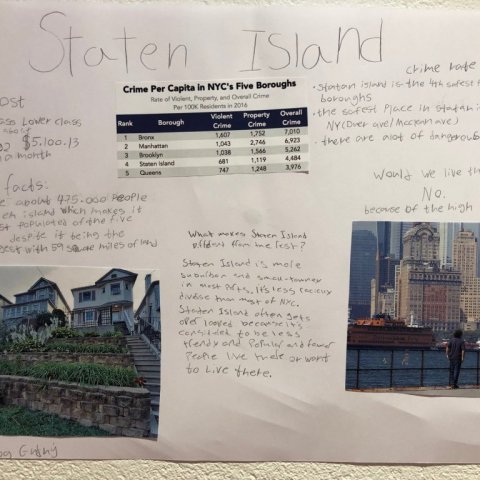 Staten Island
ost
ass Lower class
about
$5,100.13
a month
facts:
e about 475.000 People
en island which makes it
st populated of the five
despite it being the
gest with 59 square miles of land
Crime Per Capita in NYC's Five Boroughs
Rate of Violent, Property, and Overall Crime
Per 100K Residents in 2016
Rank Borough Violent Crime Property Crime Overall Crime
1 Bronx 1,607 1,752 7,010
2 Manhattan 1,043 2,746 6,923
3 Brooklyn 1,038 1,566 5,262
4 Staten Island 681 1,119 4,484
5 Queens 747 1,248 3,976
What makes Staten Island
from the rest?
Staten Island is more
suburban and
in most Parts. It's less racially
divirse than most of NYC.
Staten Island often gets
over looked because it's
considet to be less
trendy and Popular and fewer
People live there or want
to Live there.
crime rate
· Statan island is the 4th safest
boroughs
· the safest Place in Statan is
NY(Over ave/
· there are alot of dangerous
Would we live the
No.
because of the high